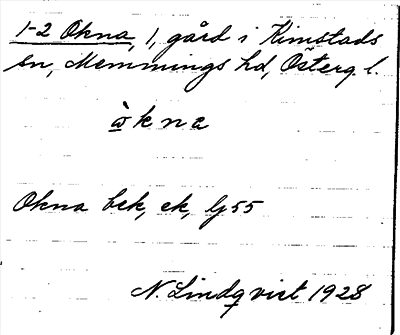 1-2 Okna, 1, gård i Kimstads
sn, Memmings hd, Österg. l.
ὰkna
Okna bek, ek, lj 55
N. Lindqvist 1928